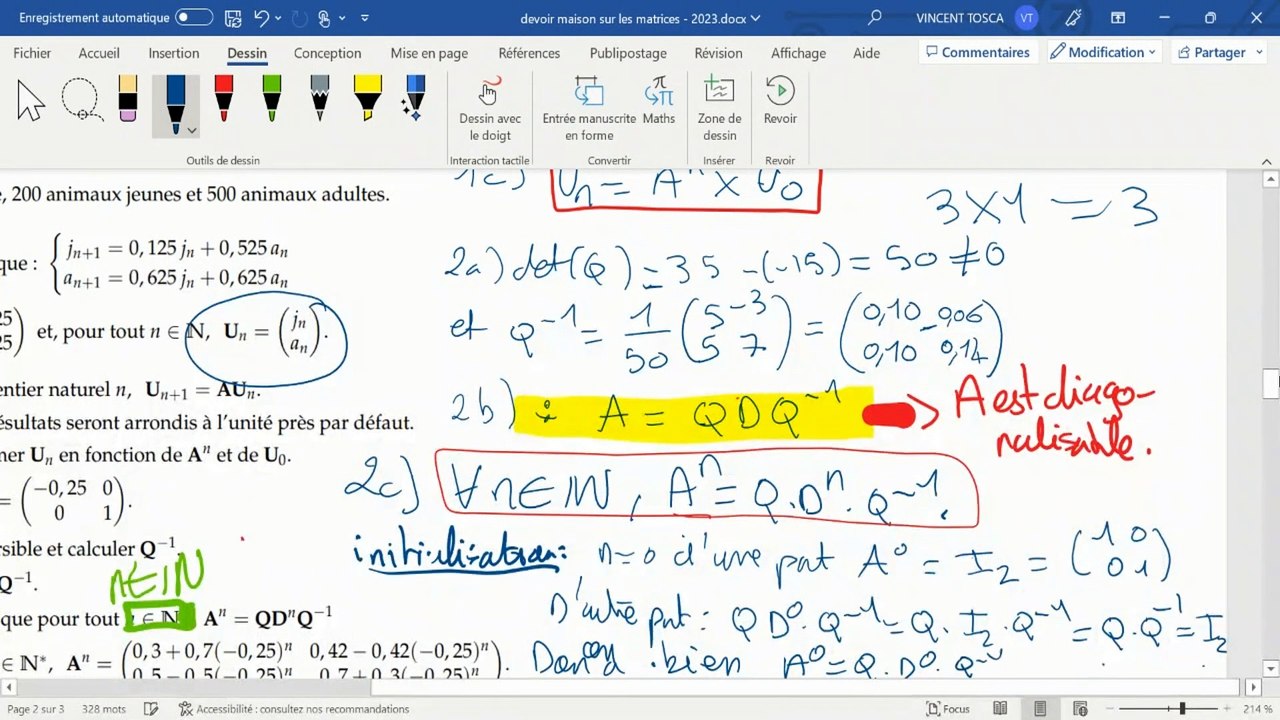 Enregistrement automatique
devoir maison sur les matrices - 2023.docx
VINCENT TOSCA VT
Fichier Accueil Insertion Dessin Conception Mise en page Références Publipostage Révision Affichage Aide
Commentaires Modification Partager
Dessin avec le doigt
Entrée manuscrite en forme
Maths
Zone de dessin
Revoir
Outils de dessin Interaction tactile Convertir Insérer Revoir
, 200 animaux jeunes et 500 animaux adultes.
que : { j_{n+1} = 0,125 j_n + 0,525 a_n
a_{n+1} = 0,625 j_n + 0,625 a_n
25) 25) et, pour tout n ∈ ℕ, U_n = (j_n a_n).
entier naturel n, U_{n+1} = AU_n.
ésultats seront arrondis à l'unité près par défaut.
ner U_n en fonction de A^n et de U_0.
= (−0,25 0
0 1).
rsible et calculer Q^{−1}.
Q^{−1}.
n∈IN
que pour tout ∈ ℕ A^n = QD^nQ^{−1}
∈ ℕ*, A^n = (0,3 + 0,7(−0,25)^n 0,42 − 0,42(−0,25)^n
0,5 − 0,5(−0,25)^n 0,7 + 0,3(−0,25)^n).
1c) U_n = A^n × U_0
3×1 = 3
2a) det(Q) = 35 −(−15) = 50 ≠ 0
et Q^{−1} = 1/50 (5 −3
5 7) = (0,10 −0,06
0,10 0,14)
2b) ÷ A = QDQ^{−1}
A est diago-
nalisable.
2c) ∀n∈IN, A^n = Q.D^n.Q^{−1}.
initialisation: n=0 d'une part A^0 = I_2 = (1 0
0 1)
D'autre part: QD^0.Q^{−1} = Q.I_2.Q^{−1} = Q.Q^{−1} = I_2
Donc on a bien A^0 = Q.D^0.Q^{−1}
Page 2 sur 3 328 mots Accessibilité : consultez nos recommandations Focus 214 %